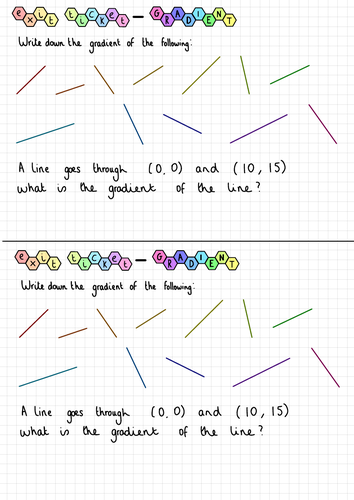 exit ticket - GRADIENT
Write down the gradient of the following:
A line goes through (0,0) and (10,15)
what is the gradient of the line?
exit ticket - GRADIENT
Write down the gradient of the following:
A line goes through (0,0) and (10,15)
what is the gradient of the line?